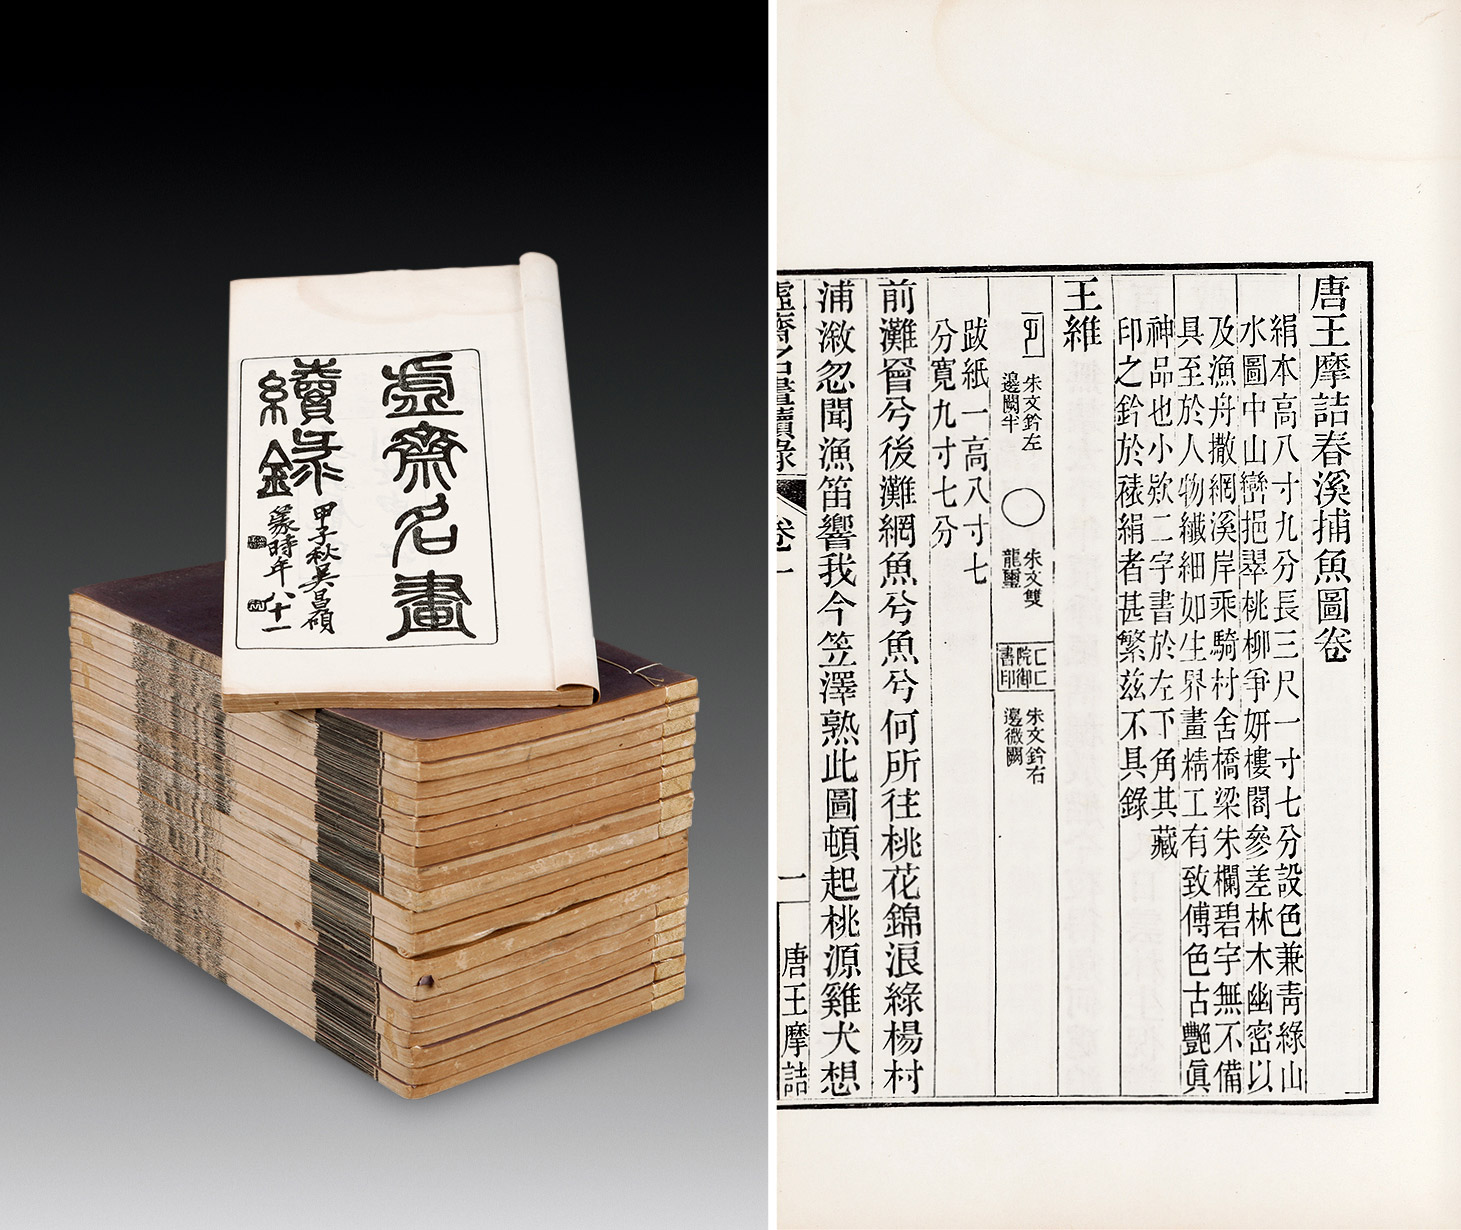 虛齋名畫
續錄
甲子秋吳昌碩
篆時年八十一
唐王摩詰春溪捕魚圖卷
絹本高八寸九分長三尺一寸七分設色兼青綠山
水圖中山巒挹翠桃柳爭妍樓閣參差林木幽密以
及漁舟撒網溪岸乘騎村舍橋梁朱欄碧宇無不備
具至於人物纖細如生界畫精工有致傅色古艷眞
神品也小欵二字書於左下角其藏
印之鈐於裱絹者甚繁茲不具錄
王維
朱文鈐左
邊闕半
朱文雙
龍璽
院御
書印
朱文鈐右
邊微闕
跋紙一高八寸七
分寬九寸七分
前灘罾兮後灘網魚兮魚兮何所往桃花錦浪綠楊村
浦漵忽聞漁笛響我今笠澤熟此圖頓起桃源雞犬想
虛齋名畫續錄
卷一
一
唐王摩詰